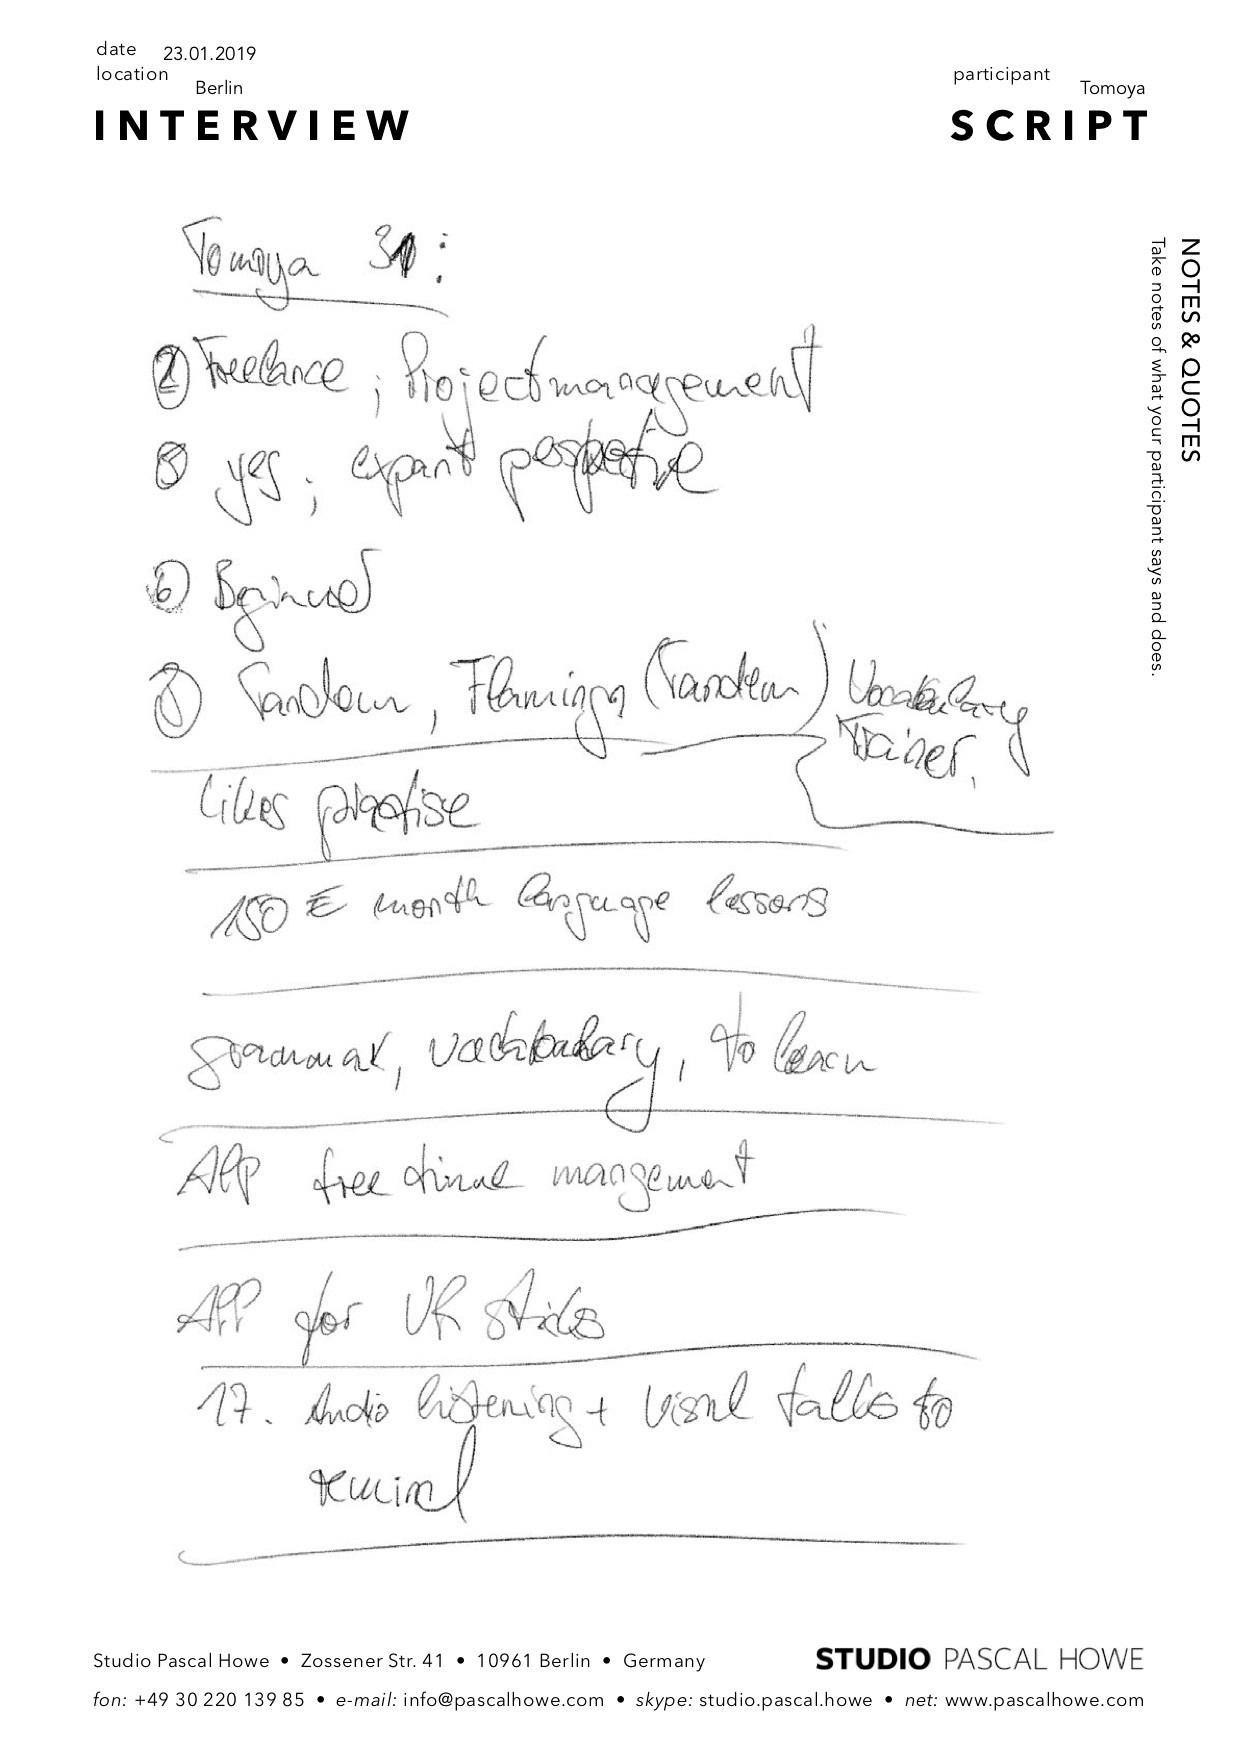 date 23.01.2019
location Berlin
participant Tomoya
INTERVIEW SCRIPT
NOTES & QUOTES
Take notes of what your participant says and does.
Tomoya 31:
Freelance ; Projectmanagement
yes ; expant perspective
6 Beginner
Tandem, Flamingo (Tandem) Vocabulary
Trainer,
likes practise
150 € month language lessons
grammar, vocabulary, to learn
App free time mangement
App for VR sticks
17. Audio listening + visul talks to
remind
Studio Pascal Howe • Zossener Str. 41 • 10961 Berlin • Germany
STUDIO PASCAL HOWE
fon: +49 30 220 139 85 • e-mail: info@pascalhowe.com • skype: studio.pascal.howe • net: www.pascalhowe.com